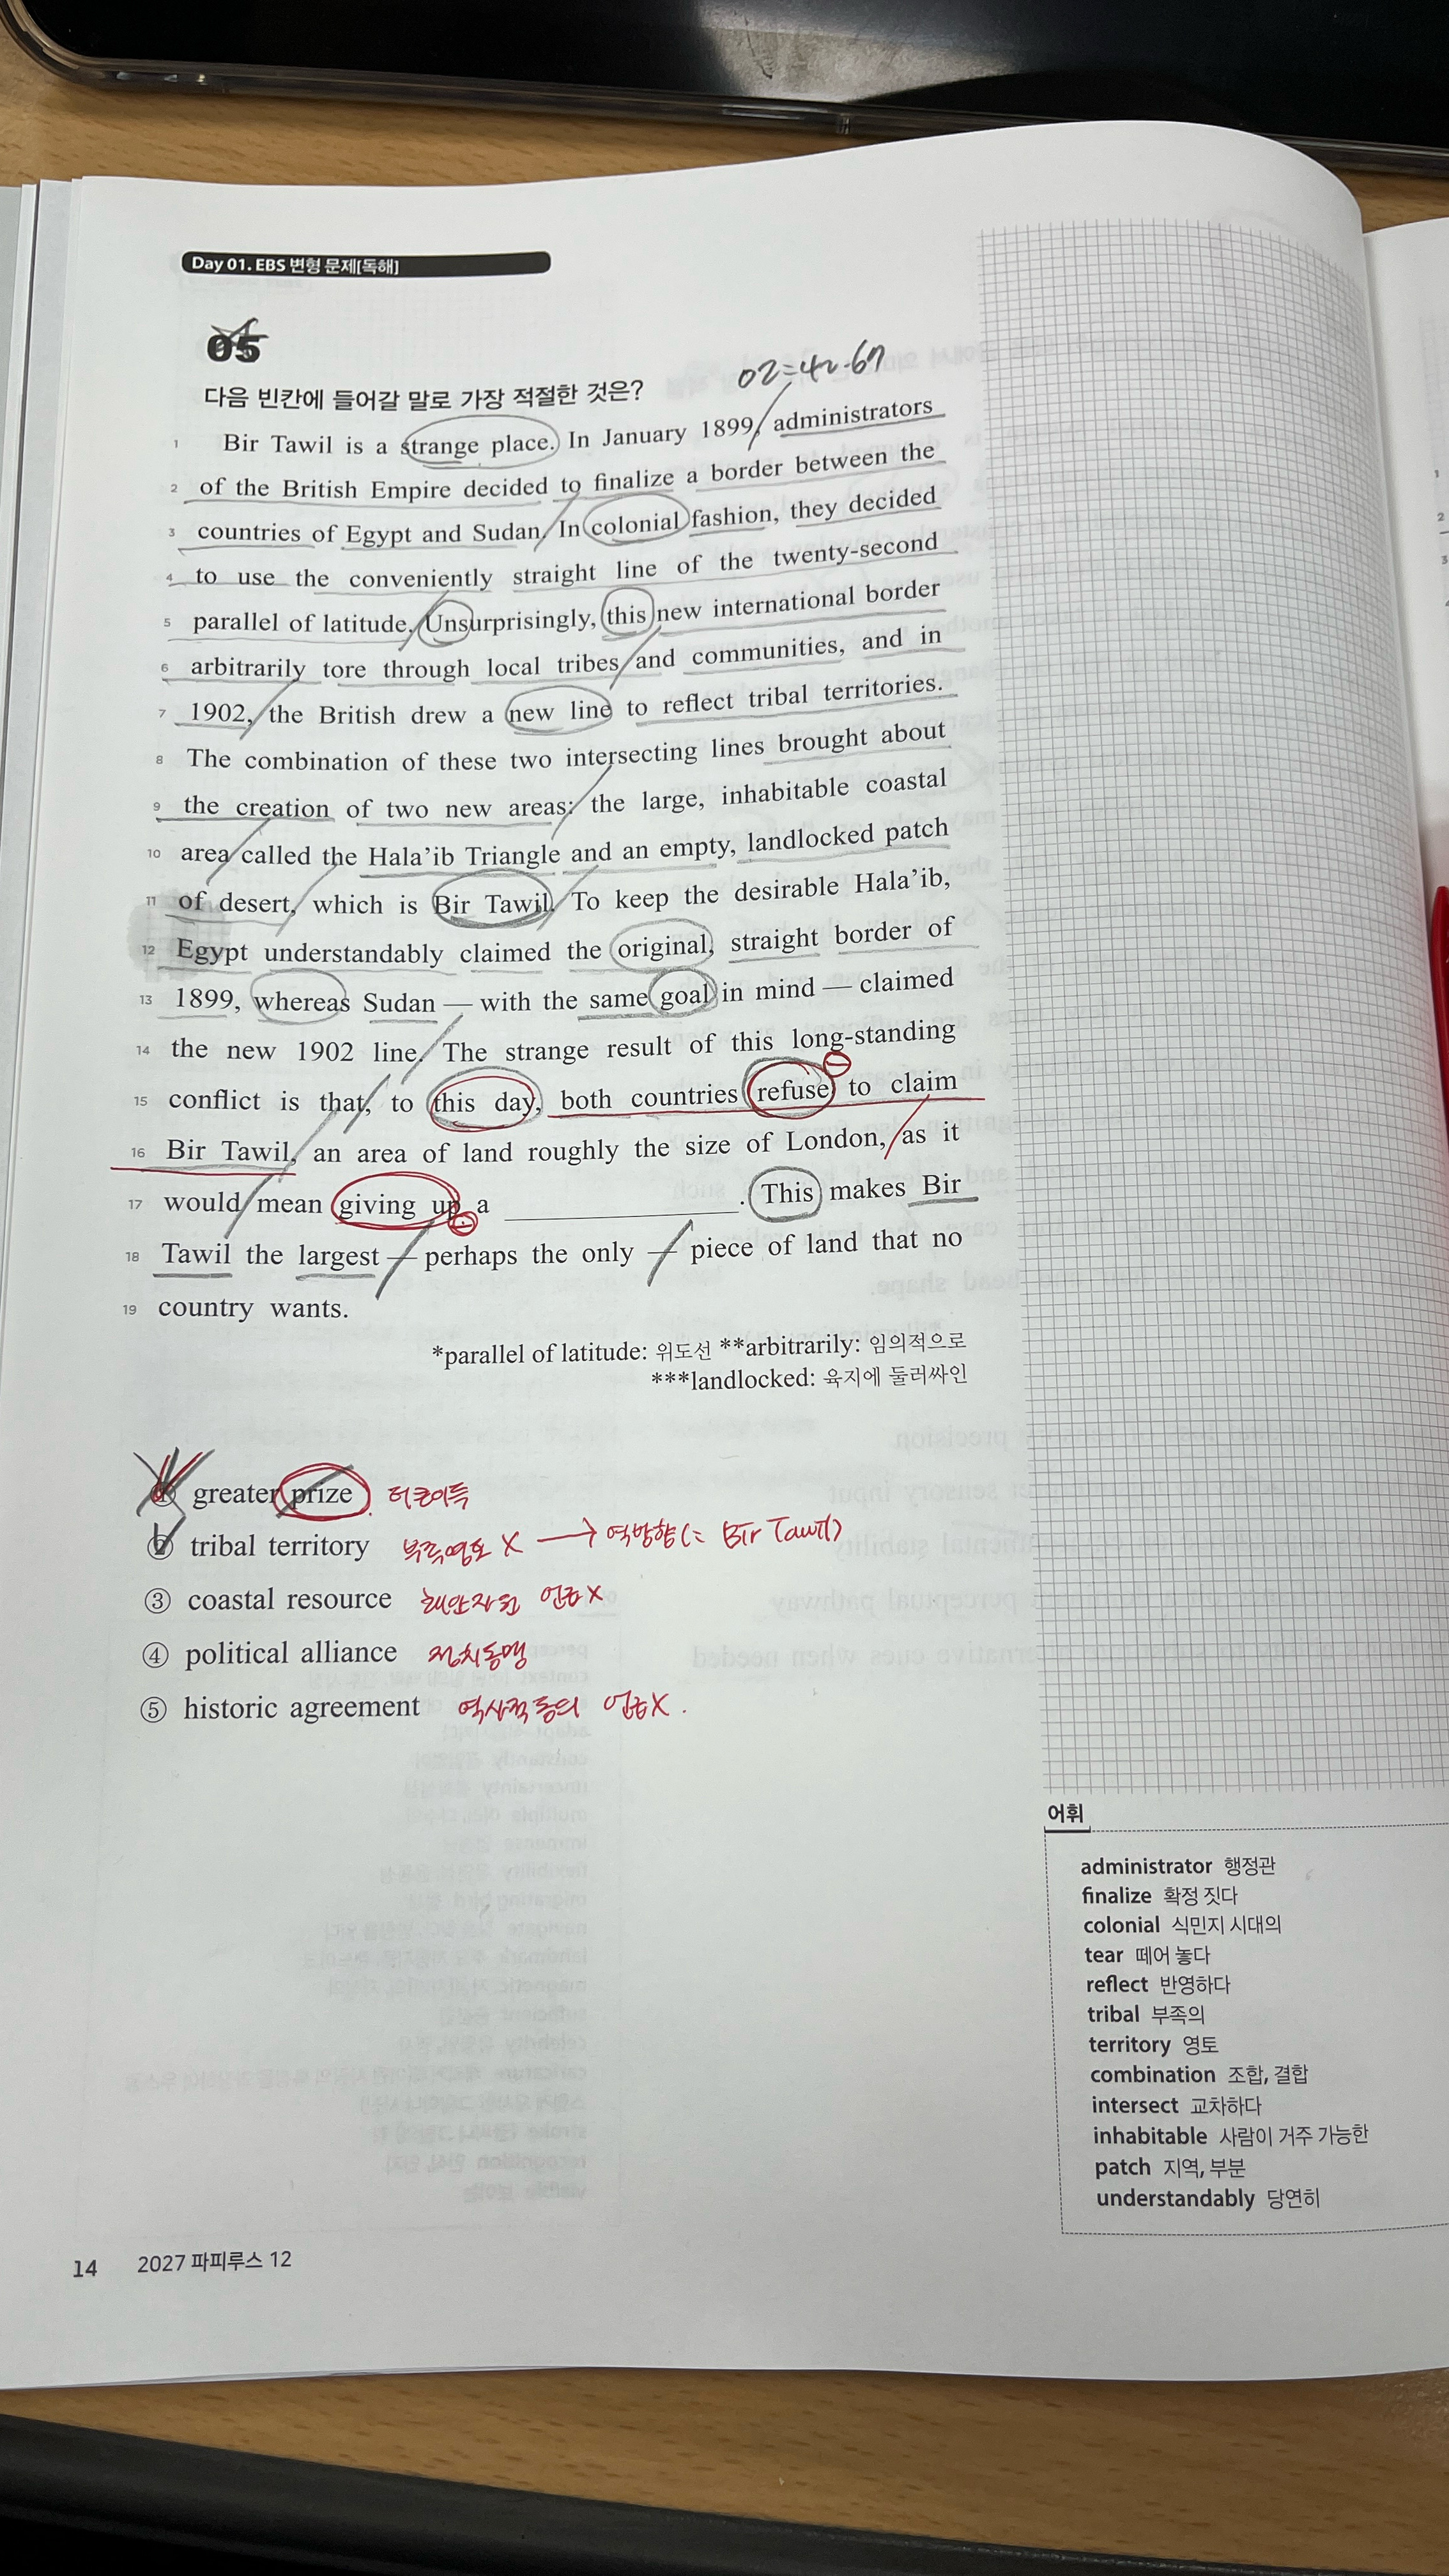 Day 01. EBS 변형 문제[독해]
05
02=42.67
다음 빈칸에 들어갈 말로 가장 적절한 것은?
1 Bir Tawil is a strange place. In January 1899, administrators
2 of the British Empire decided to finalize a border between the
3 countries of Egypt and Sudan. In colonial fashion, they decided
4 to use the conveniently straight line of the twenty-second
5 parallel of latitude. Unsurprisingly, this new international border
6 arbitrarily tore through local tribes and communities, and in
7 1902, the British drew a new line to reflect tribal territories.
8 The combination of these two intersecting lines brought about
9 the creation of two new areas: the large, inhabitable coastal
10 area called the Hala'ib Triangle and an empty, landlocked patch
11 of desert, which is Bir Tawil. To keep the desirable Hala'ib,
12 Egypt understandably claimed the original, straight border of
13 1899, whereas Sudan — with the same goal in mind — claimed
14 the new 1902 line. The strange result of this long-standing
15 conflict is that, to this day, both countries refuse to claim
16 Bir Tawil, an area of land roughly the size of London, as it
17 would mean giving up a ____________. This makes Bir
18 Tawil the largest — perhaps the only — piece of land that no
19 country wants.
*parallel of latitude: 위도선 **arbitrarily: 임의적으로
***landlocked: 육지에 둘러싸인
① greater prize 더큰이득
② tribal territory 부족영토 X → 역방향(= Bir Tawil)
③ coastal resource 해안자원 언급X
④ political alliance 정치동맹
⑤ historic agreement 역사적동의 언급X.
어휘
administrator 행정관
finalize 확정 짓다
colonial 식민지 시대의
tear 떼어 놓다
reflect 반영하다
tribal 부족의
territory 영토
combination 조합, 결합
intersect 교차하다
inhabitable 사람이 거주 가능한
patch 지역, 부분
understandably 당연히
14 2027 파피루스 12